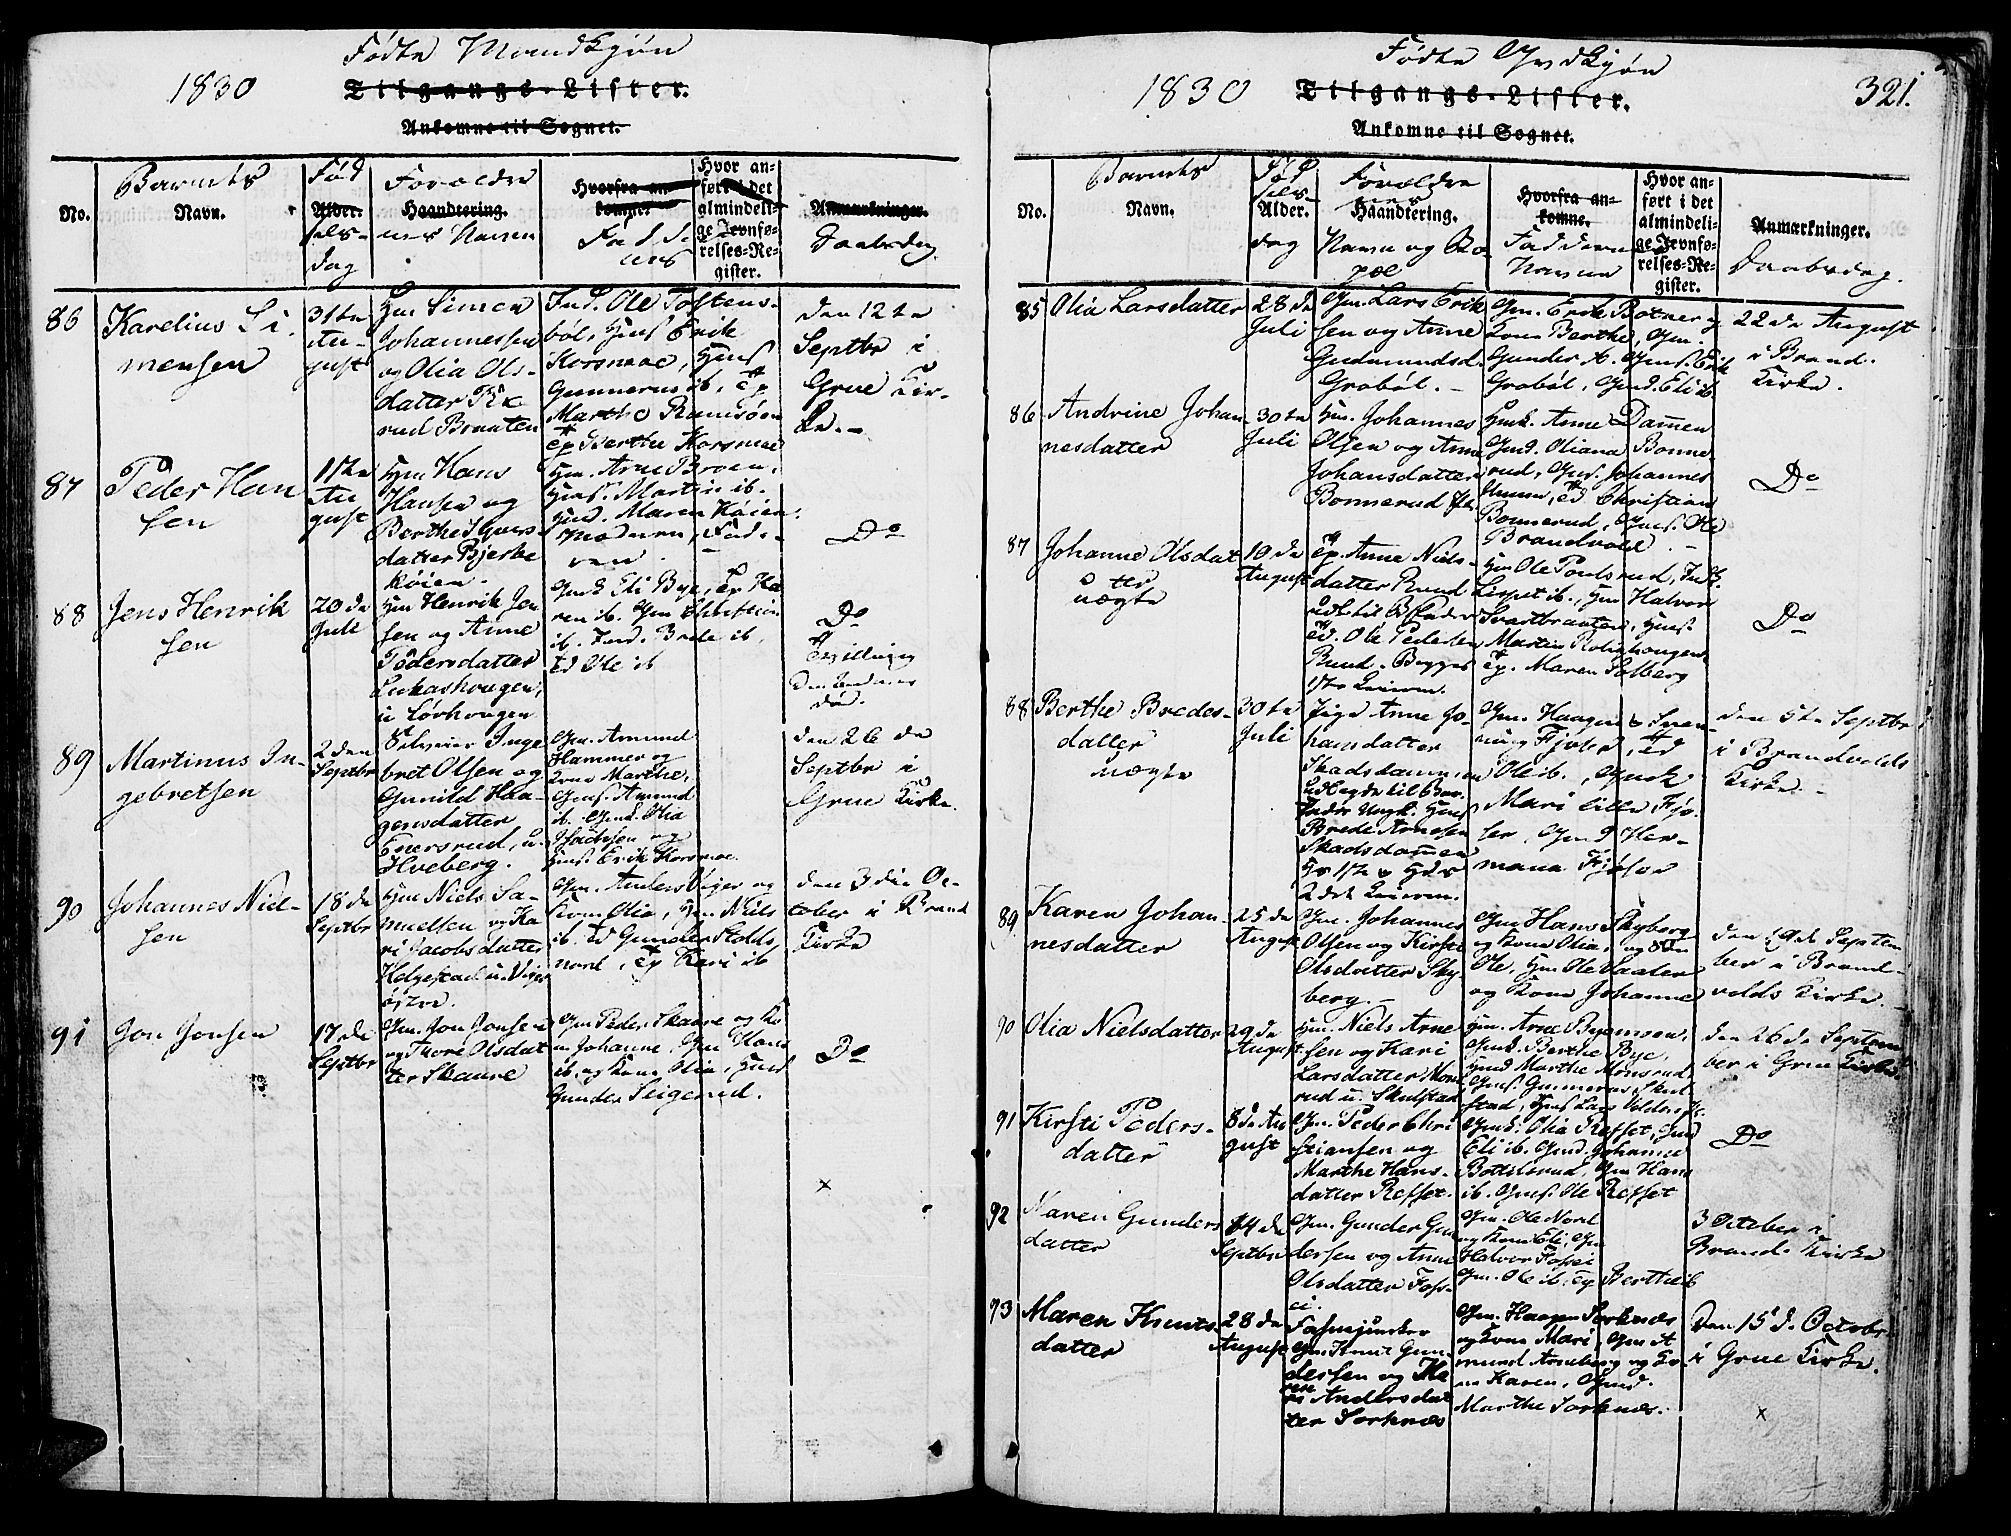 Fødte Mandkjøn
1830
Tilgangs-Lister.
Ankomne til Sognet.
No.
Barnets
Navn.
Fød
Alder.
sels-
dag
Forældre
Haandtering.
nes Navne
Hvorfra an-
komne.
Fadde
res
Hvor an-
ført i det
almindeli-
ge Jevnfø-
relses-Re-
gister.
Anmærkninger.
Daabsdag
86
Karelius Si-
mensen
31te
Au-
gust
Hm Simen
Johannessen
og Olia Ols-
datter
rud Braaten
Ind. Ole Tostens-
böl, Gms Erik
Korsmoe, Gms
Gunnerus ib. Ep
Marthe Ramsöen
Ep Berthe Korsmoe
den 12te
Septbr i
Grue Kir-
ke.-
87
Peder Han
sen
15te
Au
gust
Hm Hans
Hansen og
Berthe Syvers-
datter Bjerke
köien.
Hm. Arne Broen,
Hms. Martin ib.
Hmd. Maren Köien
Moderen, Fade-
ren
Do
88
Jens Henrik
sen
20de
Juli
Hm Henrik Jen
sen og Anne
Pedersdatter
Lukashougen,
u Lövhougen
Gmk Eli Bye, Ep Ka
ren ib. Gm Christian
ib. Ind. Brede ib.
Ed Ole ib
Do
Tvilling
Den anden
död.
89
Martinus In-
gebretsen
2den
Septbr
Selveier Inge
bret Olsen og
Gunild Haa-
gensdatter
Enersrud, u.
Hveberg.
Gm. Amund
Hammer og
Kone Marthe,
Gms. Amund
ib. Gmk. Olia
og
Hms. Erik Korsmoe.
den 26de
Septbr i
Grue Kirke.
90
Johannes Niel-
sen
18de
Septbr
Hm Niels Sa-
muelsen og Ka
ri Jacobsdatter
Helgestad u. Viger
östre.
Gm. Anders Viger og
Kone Olia, Hm Niels
ib. Ed Gunder Skolds
nord, Ep Kari ib
den 3die Oc-
tober i Brand
Kirke
91
Jon Jonsen
17de
Septbr
Gm. Jon Jonsen
og Thore Olsdat
ter Skaare
Gm Peder Skaare og Ko
ne Johanne, Gm Hans
ib. og Kone Olia, Hmd
Gunder Seigerud.
Do
Fødte Qvindkjøn
1830
321.
Tilgangs-Lister.
Ankomne til Sognet.
No.
Barnets
Navn.
Fød
sels-
Alder.
dag
Forældre
nes
Haandtering.
Navn og Bo-
pæl
Hvorfra an-
komne.
Faddernes
Navne
Hvor an-
ført i det
almindeli-
ge Jevnfø-
relses-Re-
gister.
Anmærkninger.
Daabsdag.
85
Olia Larsdatter
28de
Juli
Gm. Lars Erik
sen og Anne
Gudmundsd.
Groböl.-
Gm. Erik Botner og
Kone Berthe, Gm.
Gunder ib. Gms. Erik
Groböl, Gmd. Eli ib.
22de August
i Brand.
Kirke.
86
Andrine Johan
nesdatter
30te
Juli
Hm. Johannes
Olsen og Anne
Johansdatter
Bonnerud
Hmk. Anne Dammen
Gmd. Oliana Bonne-
rud, Gms. Johannes
Ed Christian
Bonnerud, Gms. Ole
Brandvold.
Do
87
Johanne Olsdat
ter
uægte
19de
August
Ep. Anne Niels-
datter Rund
Udlagt til B.fader
Ed. Ole Pedersen
Rund. Begges
1ste Leierm.
Hm Ole Poulsrud, Indk.
Lispet ib., Hm Halvor
Svartbraaten, Hms
Martin
Ep. Maren Solberg
Do
88
Berthe Bredes-
datter
uægte
30te
Juli
Pige Anne Jo-
hansdatter
Skadsdammen
Udlagde til Bar-
nefader Ungk. Hms
Brede Arnesen
Skadsdammen
Hs 1ste & Hdes
2det Leierm.
Gm. Haagen
Fjöser, Ed
Ole ib., Gmk
Mari lille Fjö-
ser, Gm Her-
mana Fjöser
den 5te Septbr
i Brandvolds
Kirke.
89
Karen Johan-
nesdatter
25de
August
Gm. Johannes
Olsen og Kirsti
Olsdatter Sky-
berg.-
Gm Hans Skyberg
og Kone Olia, og Sön
Ole, Hm Ole Saaten
og Kone Johanne
den 19de Septem
ber i Brand-
volds Kirke.
90
Olia Nielsdatter
29de
August
Hm. Niels Arne
sen og Kari
Larsdatter Mons
rud u. Skulstad
Hm. Arne Byemoen,
Gmk. Berthe Bye,
Hmd Marthe Monsrud
Gms. Gunnerus Skul
stad, Hms Lars
den 26de Septem
ber i Grue Kirke.
91
Kirsti Peders-
datter
8de Au
gust
Gm. Peder Chri
stiansen og
Marthe Hans-
datter Refset.
Gmk. Olia Refset, Gmd
Eli ib. Gmd. Johanne
Bottelsrud, Gm Hans
ib. Gms. Ole Refset
Do
92
Karen Gunders
datter
14de
Septbr
Gm. Gunder Gun
dersen og Anne
Olsdatter Fos-
ei.
Gm. Ole Nord
og Kone Eli, Gm
Halvor Fossei
Gm. Ole ib. Ep Berthe ib
3 October i
Brand. Kirke
93
Maren Knuts-
datter
28de
August
Fanejunker
Gm. Knut Gun-
dersen og Ka
ren Andersdat
ter Sorknæs
Gm. Haagen Sorknæs
og Kone Mari, Gm A
mund Arneberg og Ko
ne Karen, Gmd.
Marthe Sorknæs.
Den 15de Octobr
i Grue Kirke.